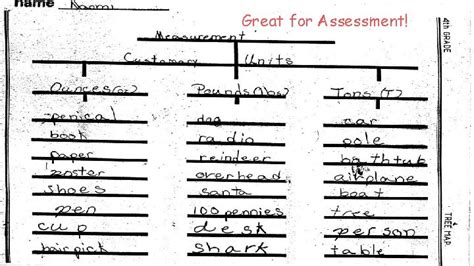 name Naomi
Great for Assessment!
4th GRADE
Measurement
Customary Units
Ounces (oz) Pounds (lbs) Tons (T)
penical dog car
book radio pole
paper reindeer
poster overhead airplane
shoes santa boat
pen 100 pennies tree
cup desk person
hair pick shark table
TREE MAP